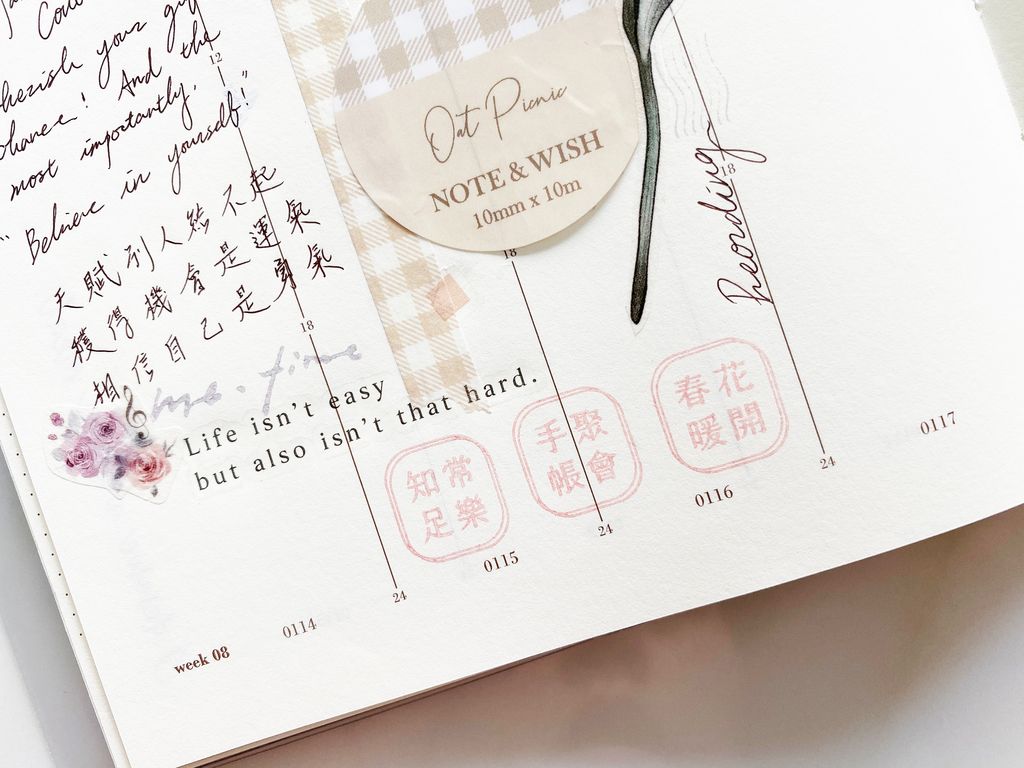 Cou
cherish your
chance! And the
most importantly,
"Believe in yourself!"
天賦別人總不起
獲得機會是運氣
相信自己是勇氣
12
18
Life isn't easy
but also isn't that hard.
Oat Picnic
NOTE & WISH
10mm x 10m
18
18
知足常樂
手帳聚會
春暖花開
24
24
24
week 08
0114
0115
0116
0117